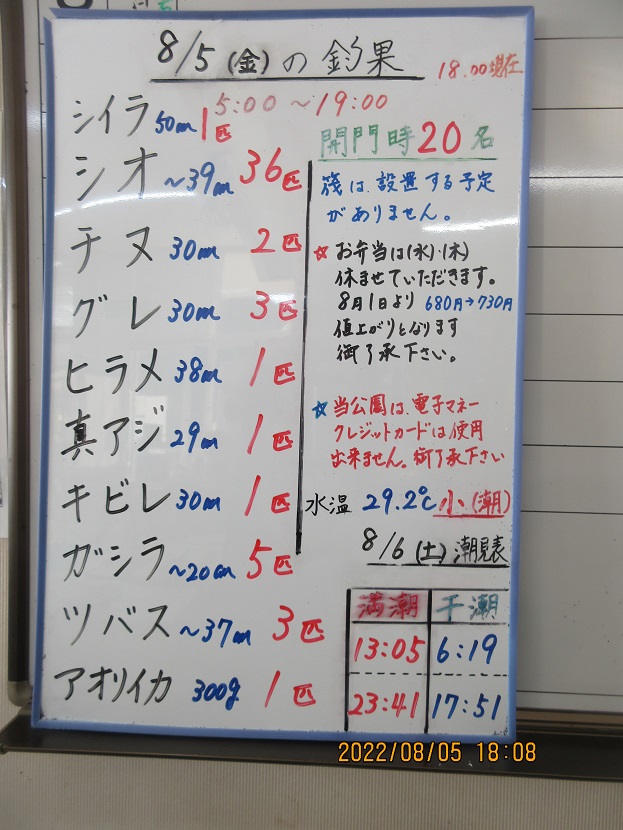 8/5(金)の釣果
18.00現在
5:00～19:00
シイラ 50cm 1匹
シオ ～39cm 36匹
チヌ 30cm 2匹
グレ 30cm 3匹
ヒラメ 38cm 1匹
真アジ 29cm 1匹
キビレ 30cm 1匹
ガシラ ～20cm 5匹
ツバス ～37cm 3匹
アオリイカ 300g 1匹
開門時20名
筏は、設置する予定
がありません。
☆お弁当は(水)・(木)
休ませていただきます。
8月1日より 680円→730円
値上がりとなります
御了承下さい。
☆当公園は、電子マネー
クレジットカードは使用
出来ません。御了承下さい
水温 29.2℃ 小(潮)
8/6(土)潮見表
満潮 干潮
13:05 6:19
23:41 17:51
2022/08/05 18:08